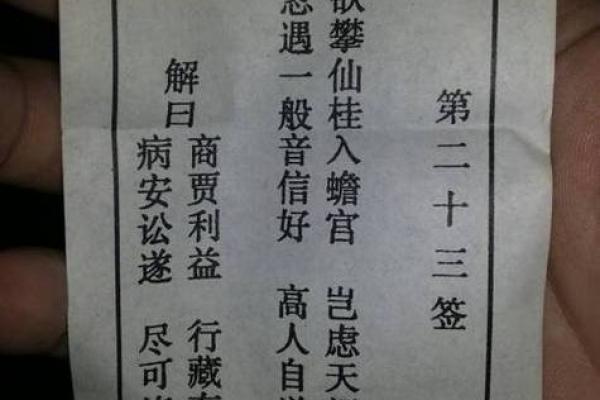 第二十三签
攀仙桂入蟾宫 岂虑天
遇一般音信好 高人自
解曰
商贾利益 行藏
病安讼遂 尽可